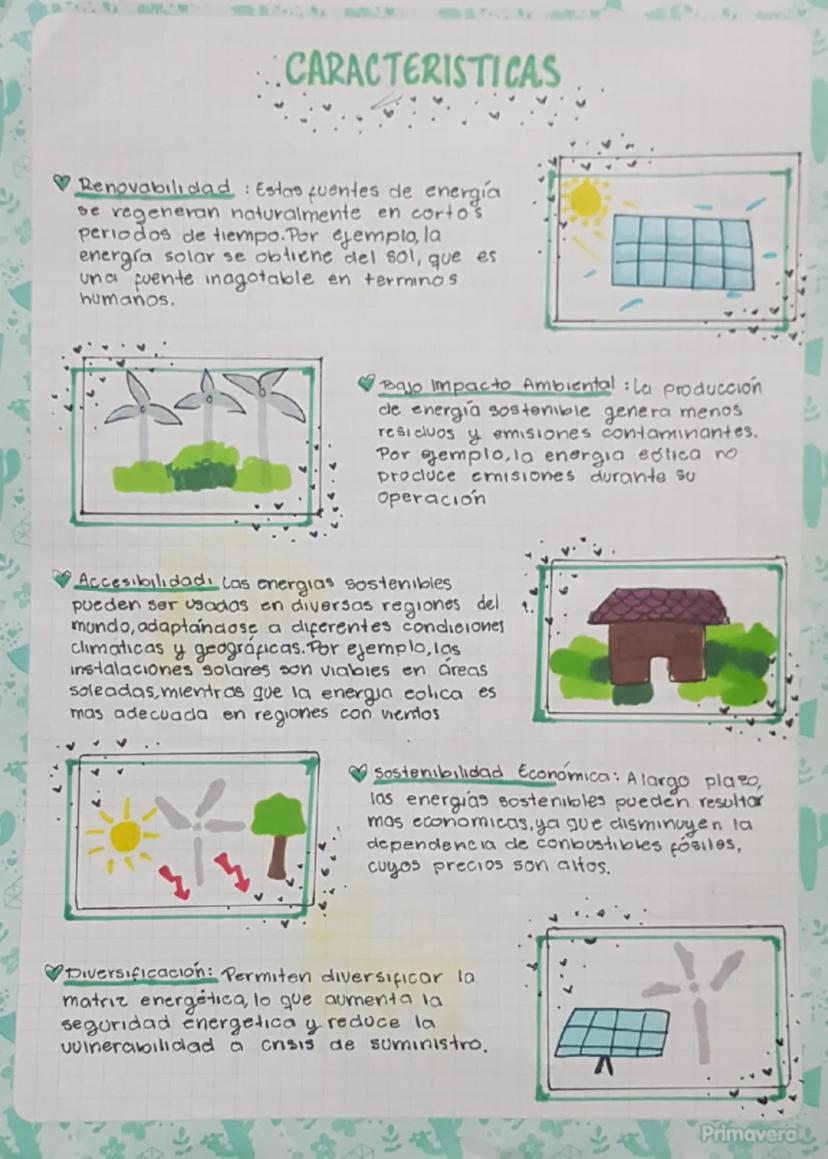 CARACTERISTICAS
Renovabilidad : Estas fuentes de energía
se regeneran naturalmente en cortos
periodos de tiempo. Por ejemplo, la
energía solar se obtiene del sol, que es
una fuente inagotable en terminos
humanos.
Bajo Impacto Ambiental : La producción
de energía sostenible genera menos
residuos y emisiones contaminantes.
Por ejemplo, la energia eólica no
produce emisiones durante su
operación
Accesibilidad: Las energias sostenibles
pueden ser usadas en diversas regiones del
mundo, adaptándose a diferentes condiciones
climaticas y geográficas. Por ejemplo, las
instalaciones solares son viables en áreas
soleadas, mientras que la energia eolica es
mas adecuada en regiones con vientos
Sostenibilidad Económica: A largo plazo,
las energías sostenibles pueden resultar
mas economicas, ya que disminuyen la
dependencia de conbustibles fósiles,
cuyos precios son altos.
Diversificación: Permiten diversificar la
matriz energética, lo que aumenta la
seguridad energetica y reduce la
vulnerabilidad a crisis de suministro.
Primavera